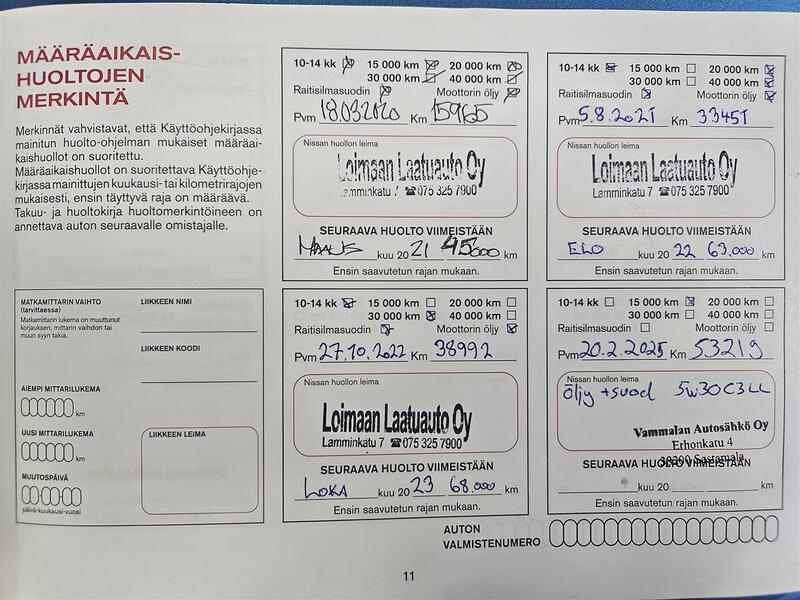 MÄÄRÄAIKAIS-
HUOLTOJEN
MERKINTÄ
Merkinnät vahvistavat, että Käyttöohjekirjassa
mainitun huolto-ohjelman mukaiset määräai-
kaishuollot on suoritettu.
Määräaikaishuollot on suoritettava Käyttöohje-
kirjassa mainittujen kuukausi- tai kilometrirajojen
mukaisesti, ensin täyttyvä raja on määräävä.
Takuu- ja huoltokirja huoltomerkintöineen on
annettava auton seuraavalle omistajalle.
10-14 kk 15 000 km 20 000 km
30 000 km 40 000 km
Raitisilmasuodin Moottorin öljy
Pvm 18.03.2020 Km 15965
Nissan huollon leima
Loimaan Laatuauto Oy
Lamminkatu 7 ☎075 325 7900
SEURAAVA HUOLTO VIIMEISTÄÄN
MAALIS kuu 20 21 45000 km
Ensin saavutetun rajan mukaan.
10-14 kk 15 000 km 20 000 km
30 000 km 40 000 km
Raitisilmasuodin Moottorin öljy
Pvm 5.8.2021 Km 33451
Nissan huollon leima
Loimaan Laatuauto Oy
Lamminkatu 7 ☎075 325 7900
SEURAAVA HUOLTO VIIMEISTÄÄN
ELO kuu 20 22 63.000 km
Ensin saavutetun rajan mukaan.
MATKAMITTARIN VAIHTO
(tarvittaessa)
Matkamittarin lukema on muuttunut
korjauksen, mittarin vaihdon tai
muun syyn takia.
LIIKKEEN NIMI
LIIKKEEN KOODI
AIEMPI MITTARILUKEMA
km
UUSI MITTARILUKEMA
km
MUUTOSPÄIVÄ
päivä-kuukausi-vuosi
LIIKKEEN LEIMA
10-14 kk 15 000 km 20 000 km
30 000 km 40 000 km
Raitisilmasuodin Moottorin öljy
Pvm 27.10.2022 Km 38992
Nissan huollon leima
Loimaan Laatuauto Oy
Lamminkatu 7 ☎075 325 7900
SEURAAVA HUOLTO VIIMEISTÄÄN
LOKA kuu 20 23 68.000 km
Ensin saavutetun rajan mukaan.
10-14 kk 15 000 km 20 000 km
30 000 km 40 000 km
Raitisilmasuodin Moottorin öljy
Pvm 20.2.2025 Km 53219
Nissan huollon leima
Öljy + suod 5W30C3LL
Vammalan Autosähkö Oy
Erhonkatu 4
38200 Sastamala
SEURAAVA HUOLTO VIIMEISTÄÄN
kuu 20 km
Ensin saavutetun rajan mukaan.
AUTON
VALMISTENUMERO
11